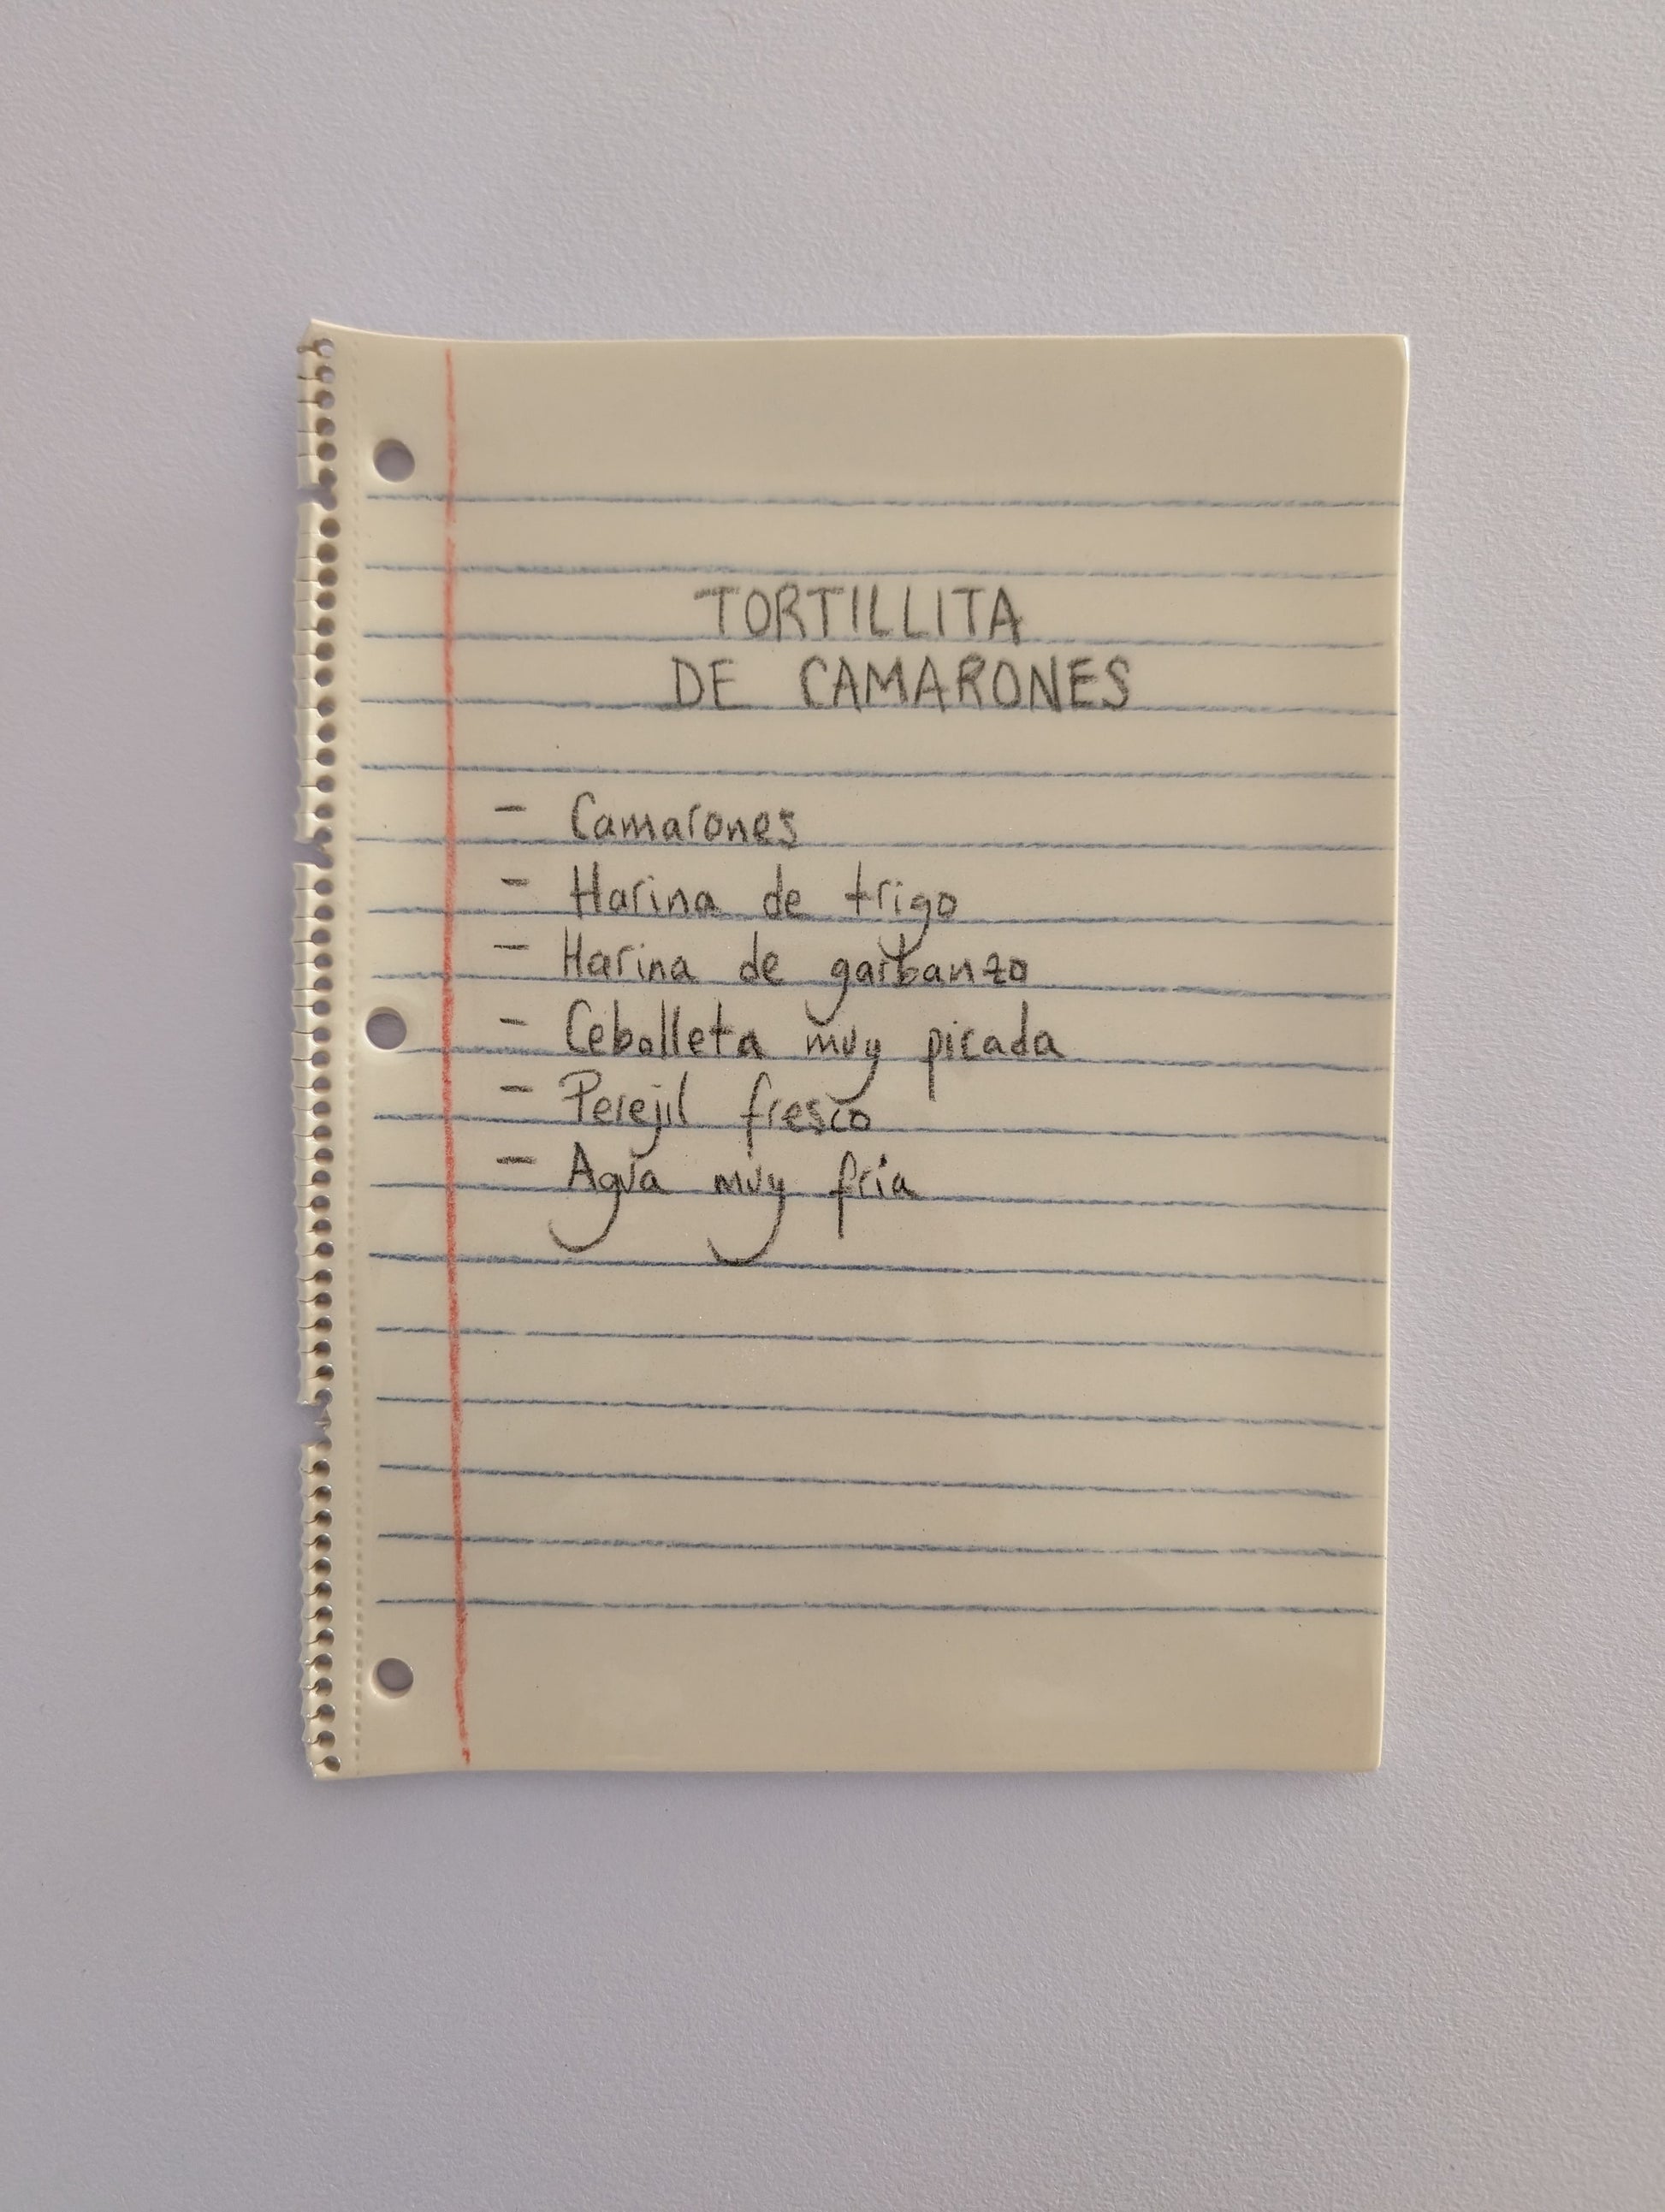 TORTILLITA
DE CAMARONES
- Camarones
- Harina de trigo
- Harina de garbanzo
- Cebolleta muy picada
- Perejil fresco
- Agua muy fría